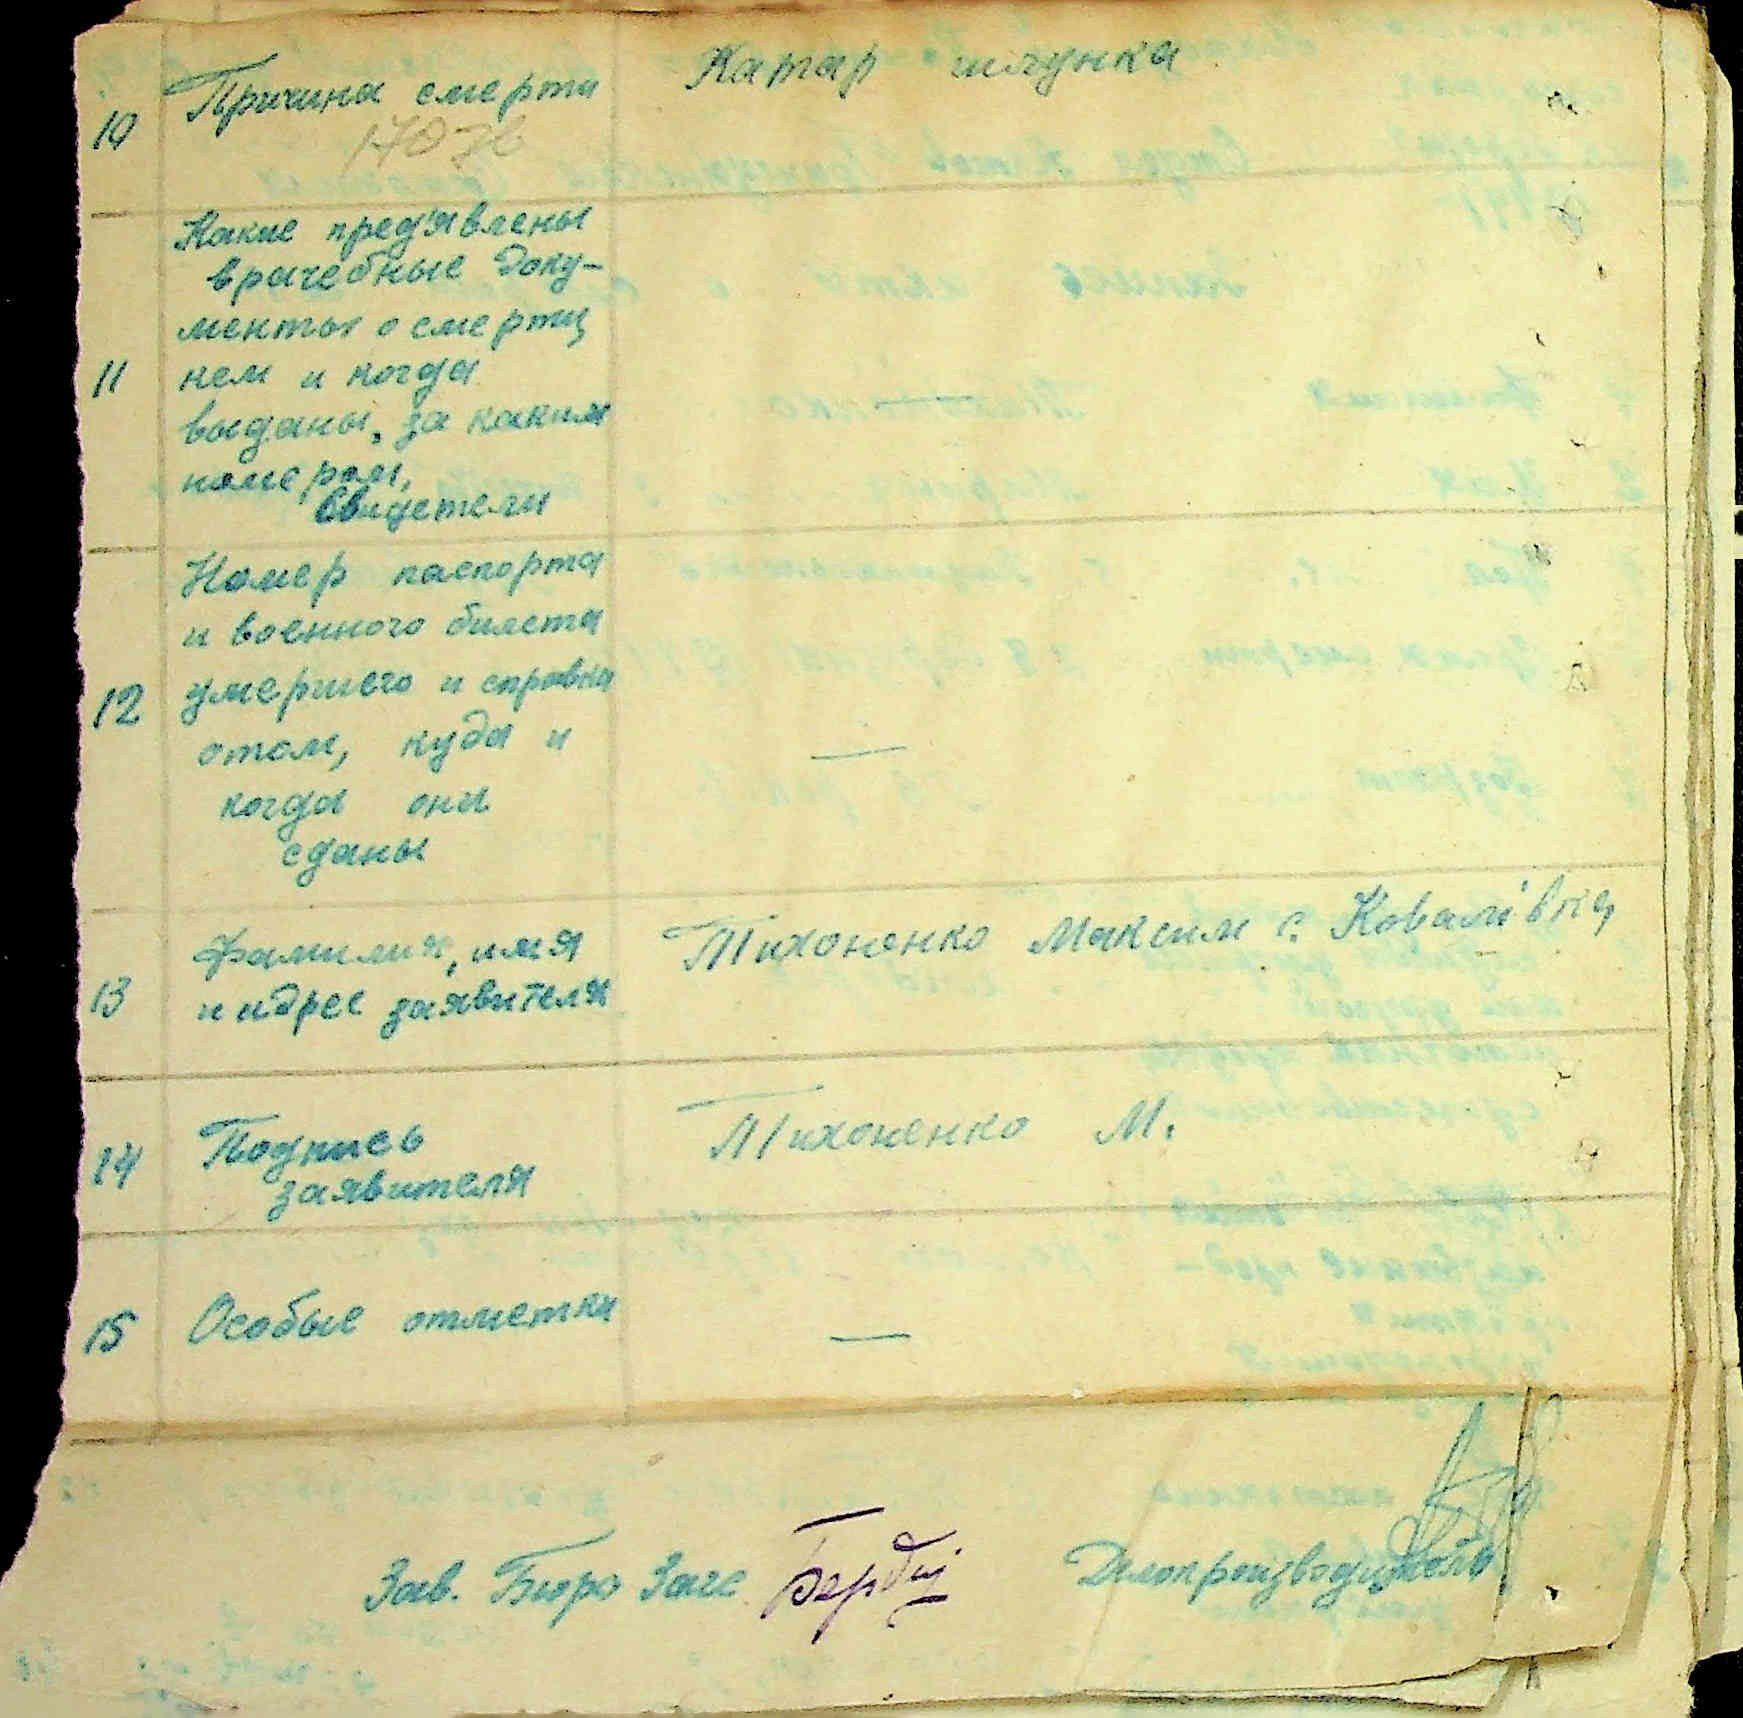 10 Причина смерти Катар шлунка
Какие пред'явлены
врачебные доку-
менты о смерти,
11 кем и когда
выданы, за каким
номером,
Свидетели
Номер паспорта
и военного билета
12 умершего и справка
отом, куда и —
когда они
сданы
Фамилия, имя Тихоненко Максим с. Ковалівка,
13 и адрес заявителя
14 Подпись Тихоненко М.
заявителя
15 Особые отметки —
Зав. Бюро Загс Делопроизводитель